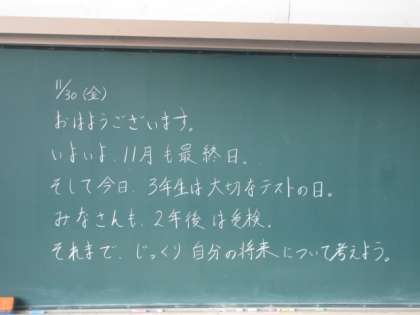 11/30(金)
おはようございます。
いよいよ、11月も最終日。
そして今日、3年生は大切なテストの日。
みなさんも、2年後は受検。
それまで、じっくり自分の将来について考えよう。